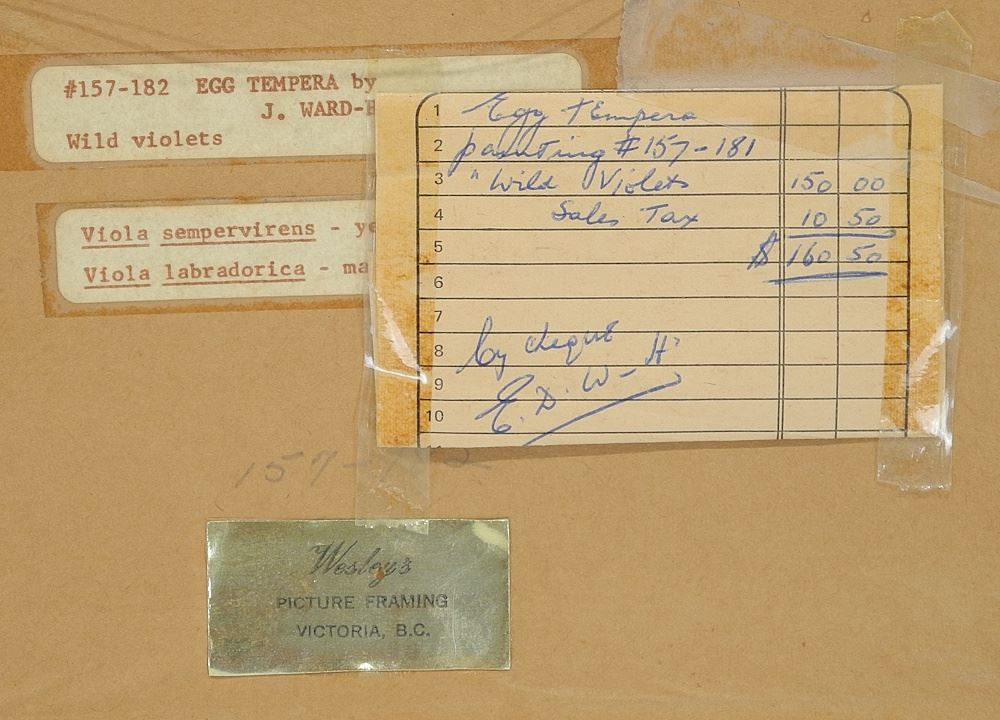 #157-182 EGG TEMPERA by
J. WARD-
Wild violets
Viola sempervirens - ye
Viola labradorica - ma
1 Egg tEmpera
2 painting #157-181
3 " Wild Violets 150 00
4 Sales Tax 10 50
5 $ 160 50
6
7
8 by cheque
9 E. D. W - H
10
157-182
Wesley's
PICTURE FRAMING
VICTORIA, B.C.